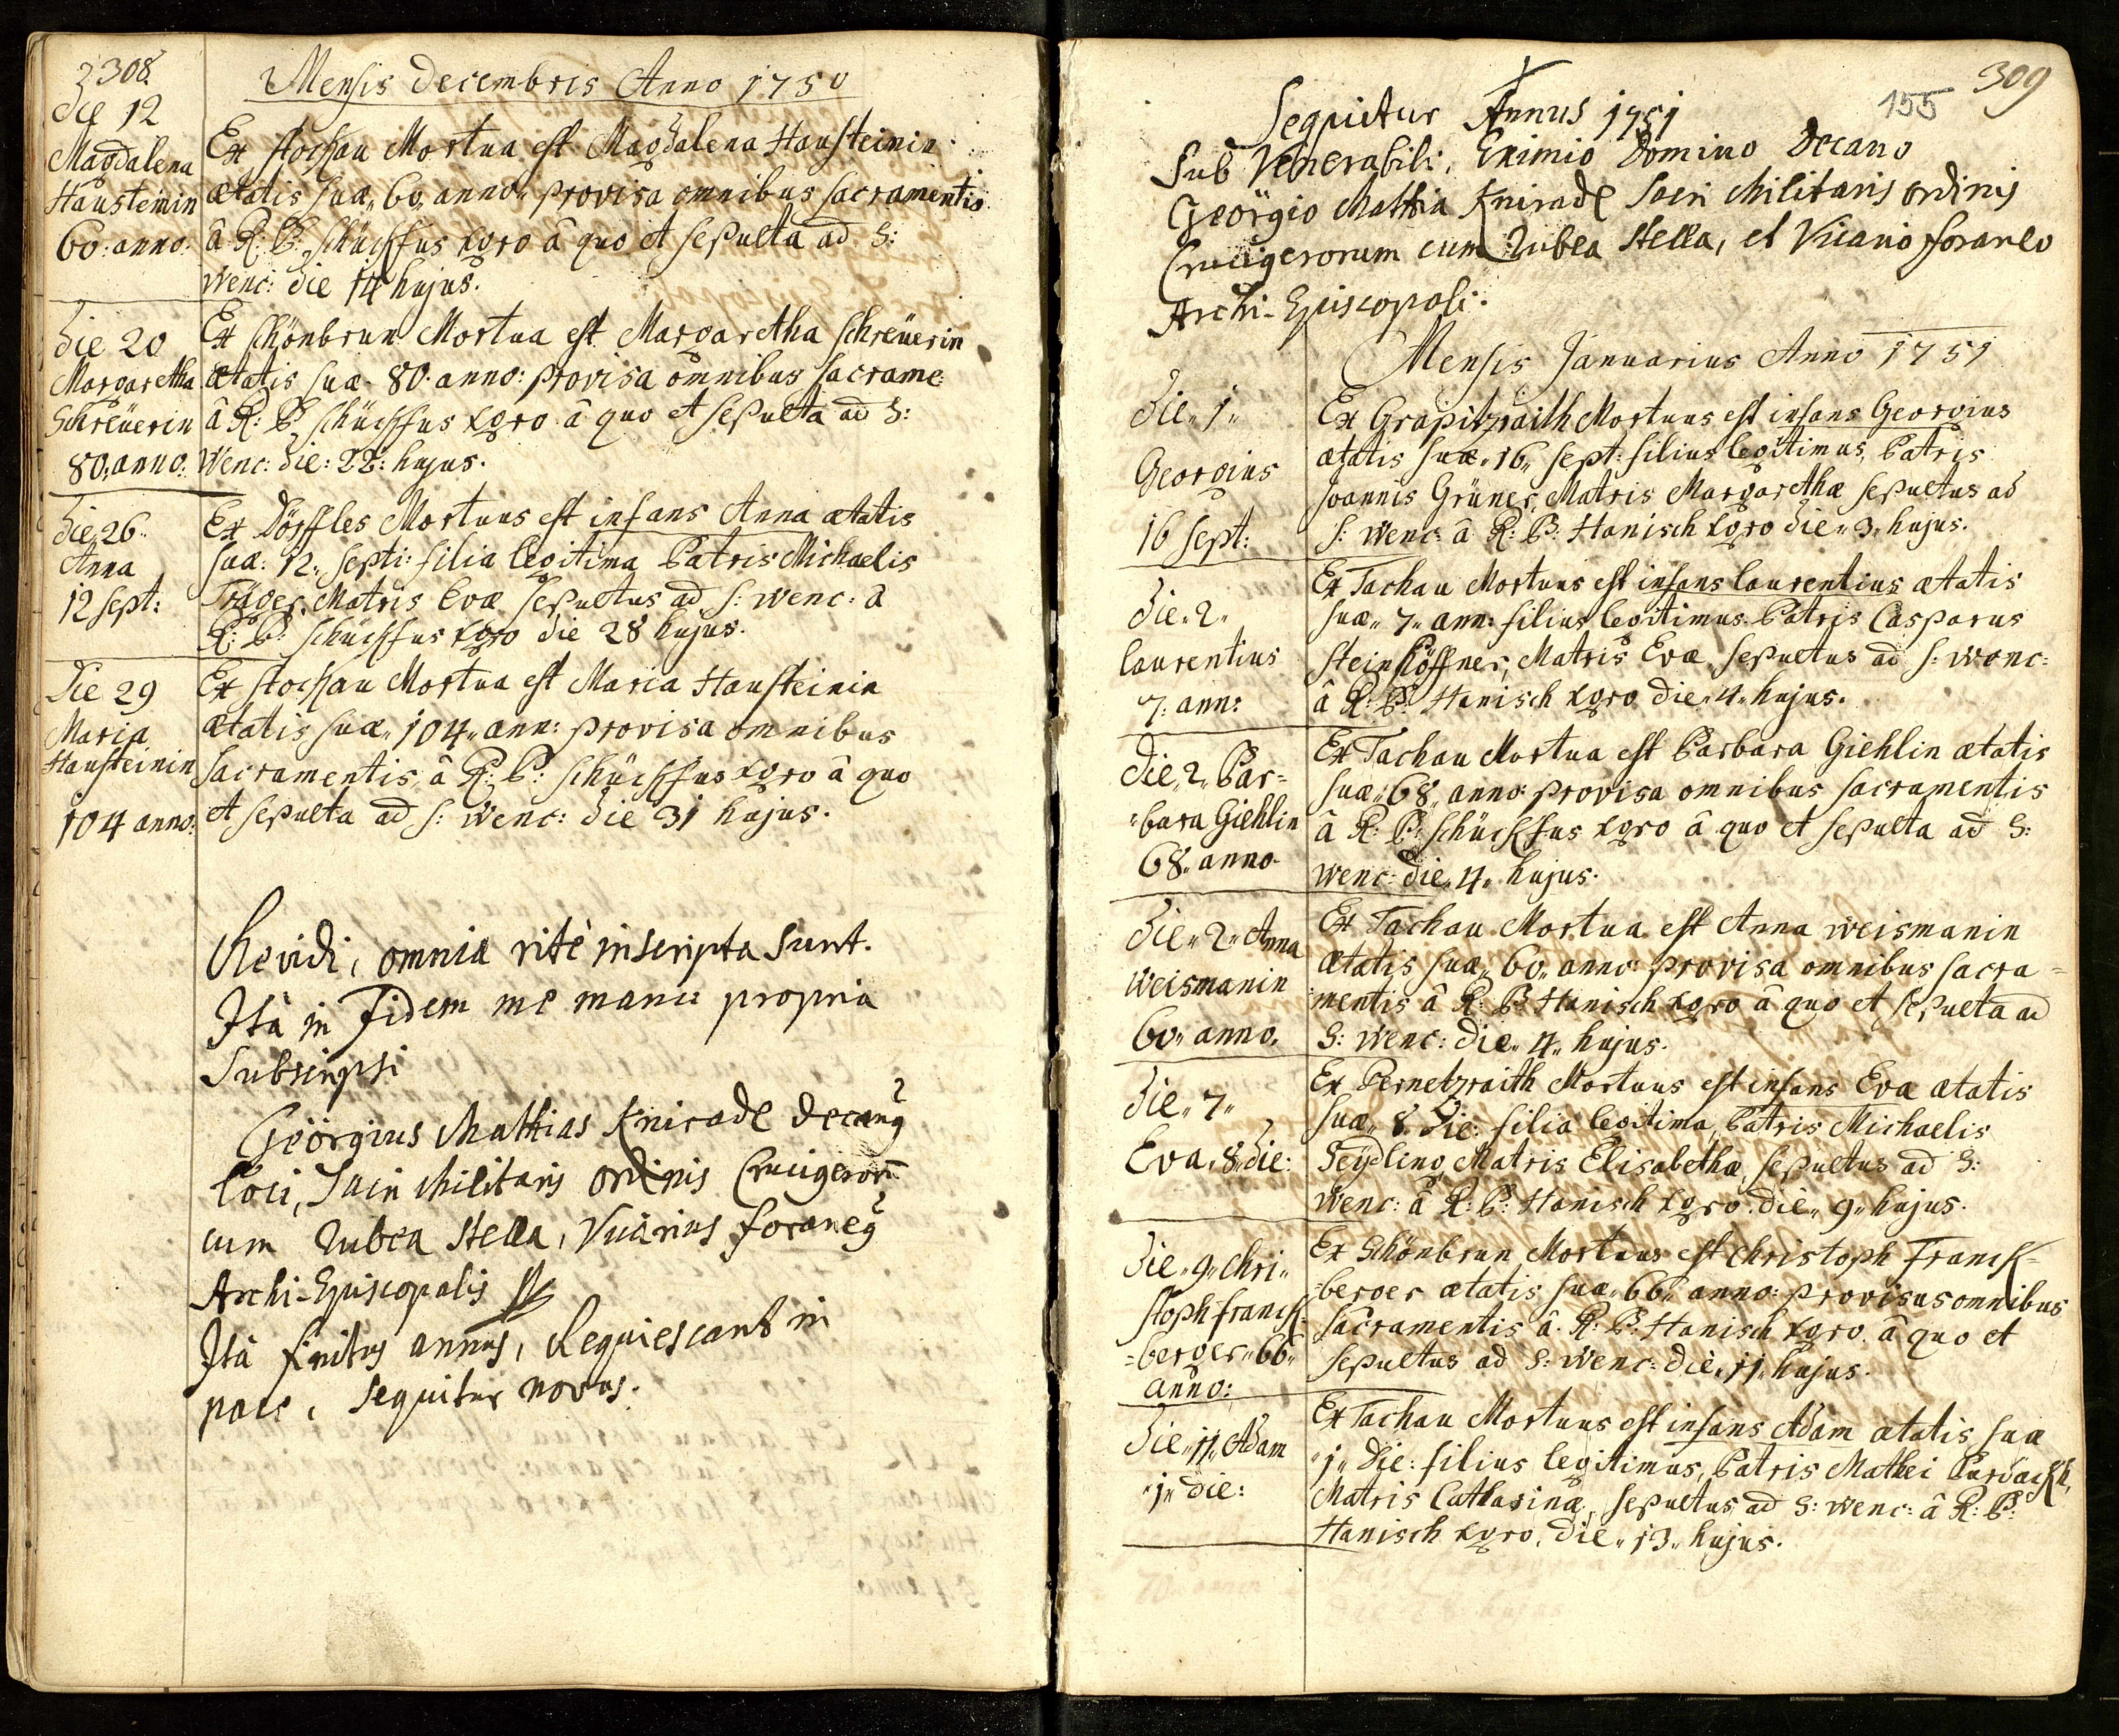 308
Mensis Decembris Anno 1750
Die 12
Magdalena
Hausteinin
60: anno:
Ex stochau Mortua est Magdalena Hausteinin
ætatis suæ „60„ anno„ provisa omnibus sacramentis
â R: P: schüchfus xgro â quo et sepulta ad S:
Wenc: die 14 hujus.
Die 20
Margaretha
Schreüerin
80: anno:
Ex schönbrun Mortua est Margaretha schreüerin
ætatis suæ 80 anno: provisa omnibus sacrame:
â R: P: schüchfus xgro â quo et sepulta ad S:
Wenc: die: 22: hujus.
Die 26
Anna
12 sept:
Ex Dörffles Mortuus est infans Anna ætatis
suæ: 12„ septi: filia legitima Patris Michaelis
Träger, Matris Evæ sepultus ad S: wenc: â
R: P: schüchfus xgro die 28 hujus.
Die 29
Maria
Hausteinin
104 anno:
Ex stochau Mortua est Maria Hausteinin
ætatis suæ „104„ ann: provisa omnibus
sacramentis, â R: P: schüchfus xgro â quo
et sepulta ad S: wenc: die 31 hujus.
Revidi, omnia rite inscripta sunt.
Ità in Fidem me manu propria
Subscripsi
Geörgius Mathias Kniradl decang
loci, Sacri Militaris ordinis Crucigeror̄
cum rubea Stella, Vicarius foraneg
Archi-Episcopalis
Ità finitus annus, Requiescant in
pace, sequitur novus.
309
155
Sequitur Annus 1751
Sub Venerabili, Eximio Domino Decano
Geörgio Mathia Kniradl Sacri Militaris ordinis
Crucigerorum cum rubea Stella, et Vicario foraneo
Archi-Episcopali.
Mensis Januarius Anno 1751
Die „1„
Georgius
16 sept:
Ex Grapitzraith Mortuus est infans Georgius
ætatis suæ „16„ sept: filius legitimus, Patris
Joannis Grüner, Matris Margarethæ sepultus ad
S: wenc: â R: P: Hanisch xgro die „3„ hujus.
Die „2„
laurentius
7: ann:
Ex Tachau Mortuus est infans laurentius ætatis
suæ „7„ ann: filius legitimus. Patris Casparus
steinhöffner, Matris Evæ, sepultus ad S: wenc:
â R: P: Hanisch xgro die „4„ hujus.
Die „2„ Bar=
=bara Giehlin
68„ anno
Ex Tachau Mortua est Barbara Giehlin ætatis
suæ „68„ anno: provisa omnibus sacramentis
â R: P: schüchfus xgro â quo et sepulta ad S:
wenc: die „4„ hujus.
Die „2„ Anna
weismanin
60„ anno.
Ex Tachau Mortua est Anna weismanin
ætatis suæ „60„ anno: provisa omnibus sacra=
mentis â R: P: Hanisch xgro â quo et sepulta ad
S: wenc: die „4„ hujus.
Die „7„
Eva „8„ die:
Ex Pernetzraith Mortuus est infans Eva ætatis
suæ „8„ Die: filia legitima, Patris Michaelis
Seydling, Matris Elisabethæ, sepultus ad S:
wenc: â R: P: Hanisch xgro. die „9„ hujus.
Die „9„ Chri=
stoph franck=
=berger „66„
anno:
Ex Schönbrun Mortuus est Christoph Franck=
=berger ætatis suæ „66„ anno: provisus omnibus
sacramentis â R: P: Hanisch xgro. â quo et
sepultus ad S: wenc: die „11„ hujus.
Die „11„ Adam
„1„ die:
Ex Tachau Mortuus est infans Adam ætatis suæ
„1„ Die: filius legitimus, Patris Mathei
Matris Catharinæ, sepultus ad S: wenc: â R: P:
Hanisch xgro, die „13„ hujus.